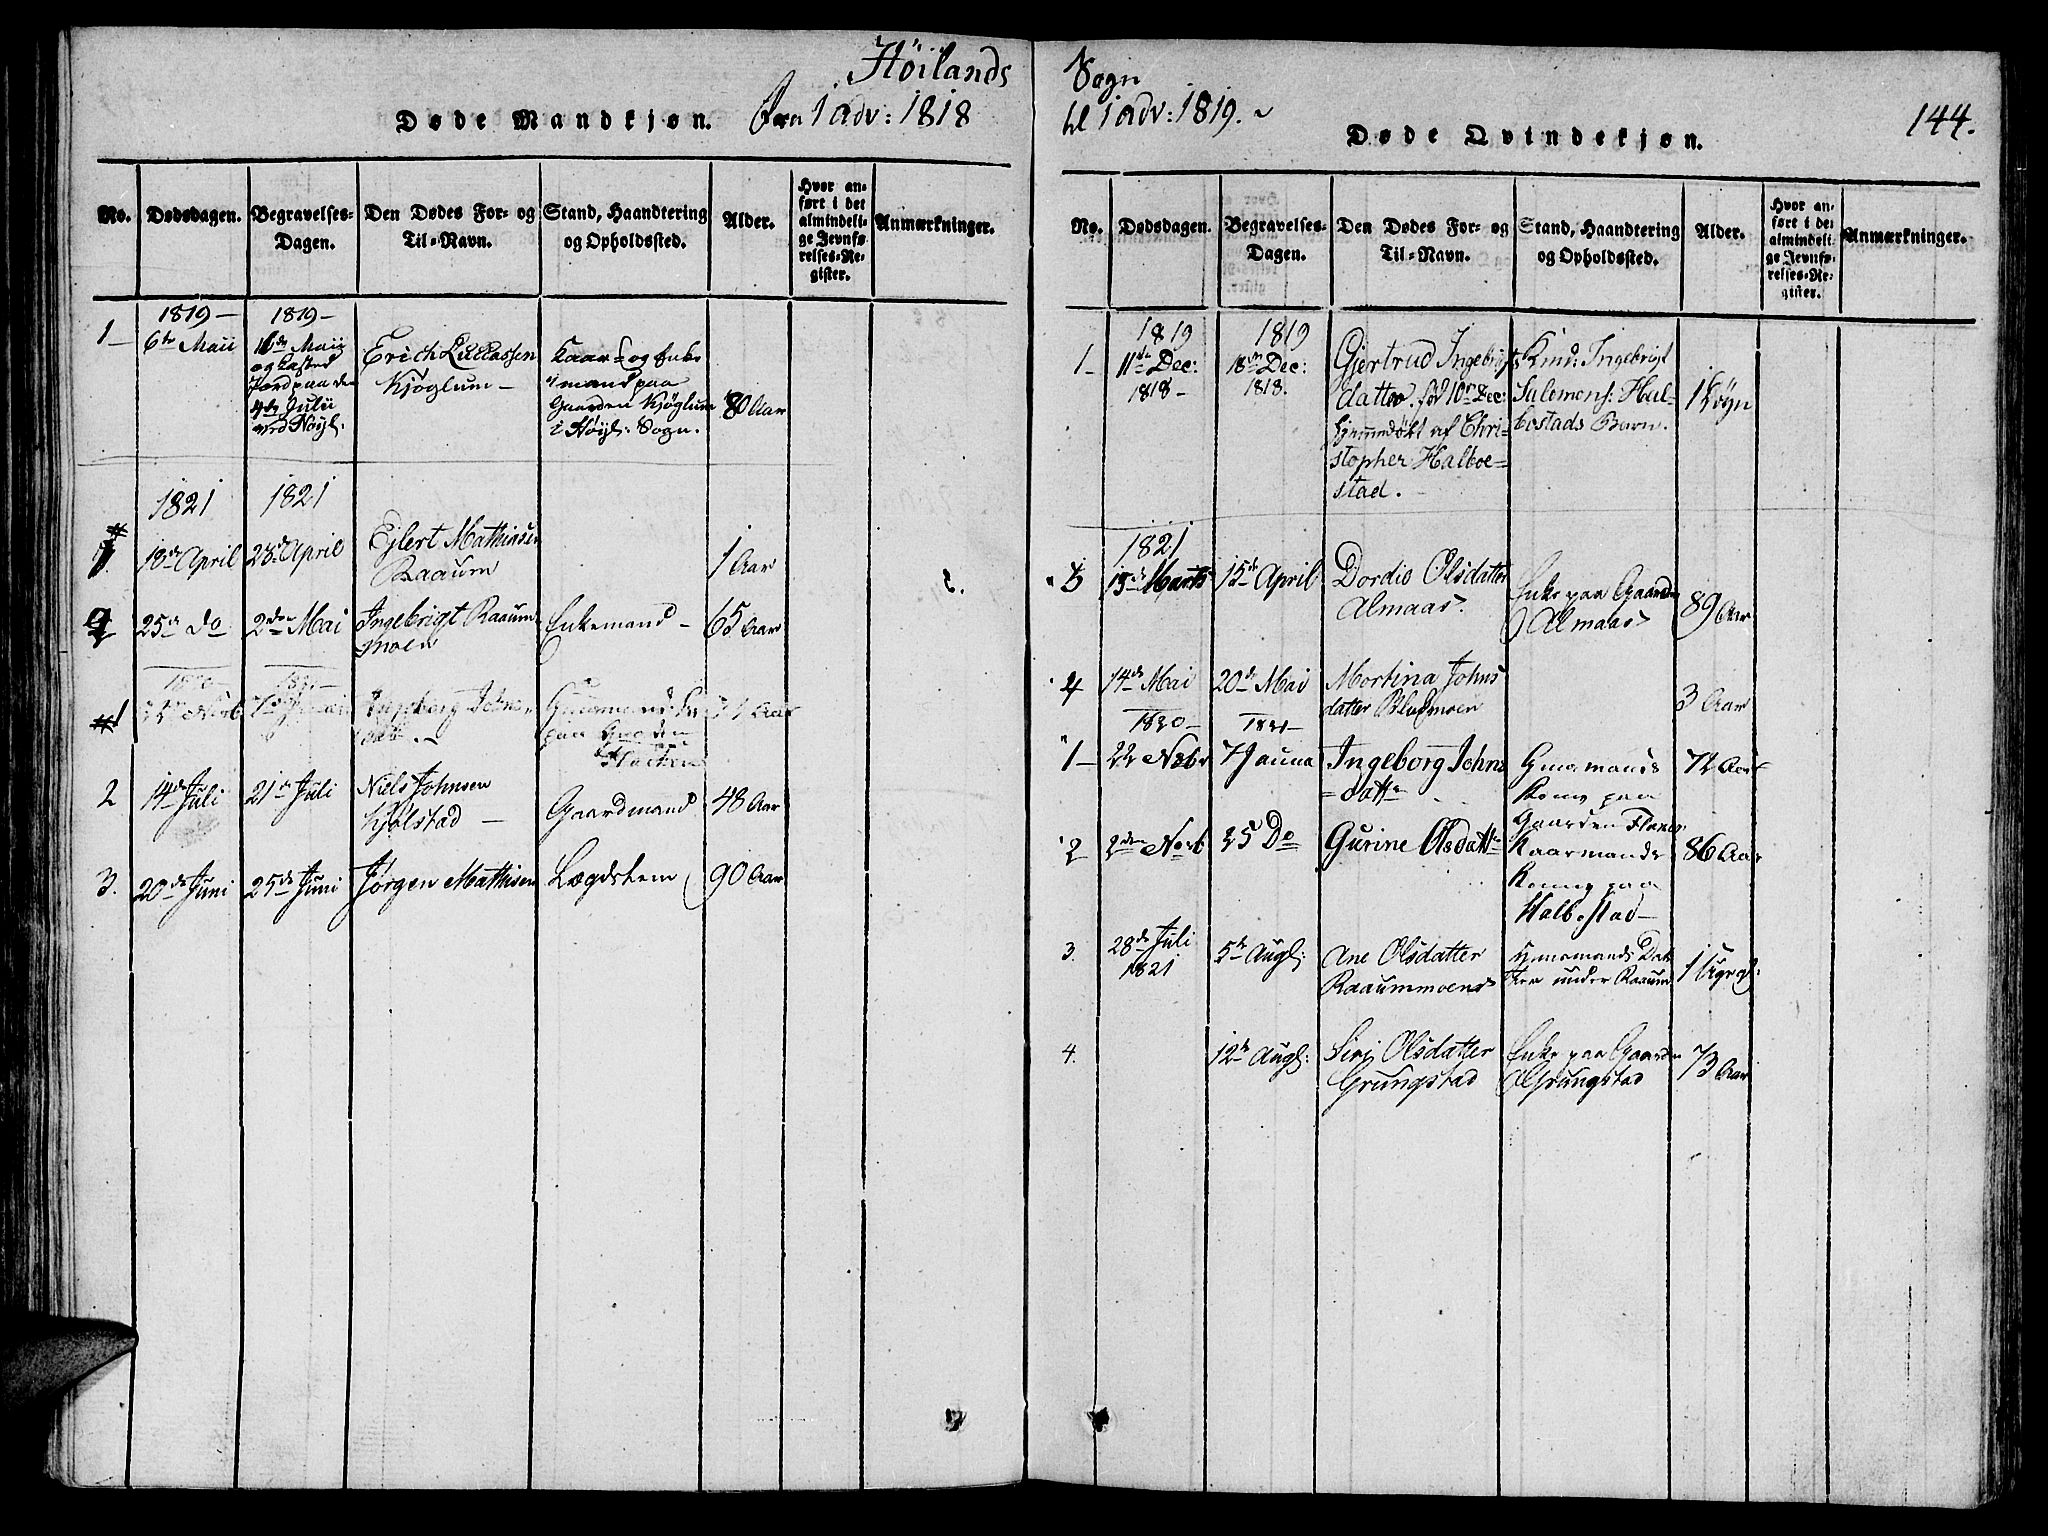 Høilands
Døde Mandkjøn. fra 1 Adv: 1818
No.
Dødsdagen.
Begravelses-
Dagen.
Den Dødes For- og
Til-Navn.
Stand, Haandtering
og Opholdssted.
Alder.
Hvor an-
ført i det
almindeli-
ge Jevnfø-
relses-Re-
gister.
Anmærkninger.
1
1819
6te Maii
1819
16de Maii
og kasted
Jord paa den
4de Julii
ved Høyl:
Erich Luccassen
Kjøglum
Kaar- og Enke
mand paa
Gaarden Kjøglum
i Høyl: Sogn.
80 Aar
1821
1821
18de April
28de April
Ejlert Mathiesen
Raaum
1 Aar
2
25de do
2den Mai
Ingebrigt Raaum
moen
Enkemand
65 Aar
Ingeborg Johns
2
14de Juli
21de Juli
Niels Johnsen
Kjølstad
Gaardmand
48 Aar
3.
20de Juni
25de Juni
Jørgen Mathisen
Lægdslem
90 Aar
Sogn
til 1 Adv: 1819.
144.
Døde Qvindekjøn.
No.
Dødsdagen.
Begravelses-
Dagen.
Den Dødes For- og
Til-Navn.
Stand, Haandtering
og Opholdssted.
Alder.
Hvor an-
ført i det
almindeli-
ge Jevnfø-
relses-Re-
gister.
Anmærkninger.
1
1819
11te Dec:
1818
1819
18de Dec:
1818.
Gjertrud Ingebrigts
datter. fød 10de Dec:
hjemmedøbt af Chri-
stopher Halboe-
stad.
Ingebrigt
Salomons: Hal-
bostads Barn.
1 Døgn
1821
3
15de Marts
15de April
Dordio Olsdatter
Almaas.
Enke paa Gaarden
Almaas
89 Aar
4
14de Mai
20de Mai
Mortina Johns
datter Bludmoen
3 Aar
1820
1821
1
22 Novbr
7 Janua
Ingeborg Johns
datter
Huusmands
Kone paa
Gaarden
72 Aar
2
2den Novb
25 Do
Gurine Olsdatter
Kaarmands
Kone paa
Halbostad
86 Aar
3.
28de Juli
1821
5te Augs:
Ane Olsdatter
Raaummoen
Huusmands Dat
ter under Raaum
4.
12te Augs:
Siri Olsdatter
Grungstad
Enke paa Gaarden
Grungstad
73 Aar